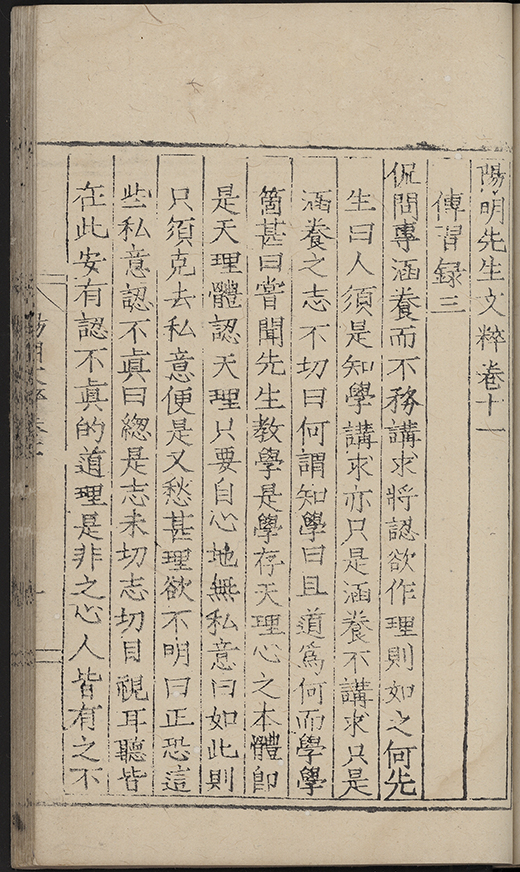 陽明先生文粹卷十一
傳習録三
侃問專涵養而不務講求將認欲作理則如之何先
生曰人須是知學講求亦只是涵養不講求只是
涵養之志不切曰何謂知學曰且道爲何而學學
箇甚曰嘗聞先生教學是學存天理心之本體卽
是天理體認天理只要自心地無私意曰如此則
只須克去私意便是又愁甚理欲不明曰正恐這
些私意認不眞曰緫是志未切志切目視耳聽皆
在此安有認不眞的道理是非之心人皆有之不